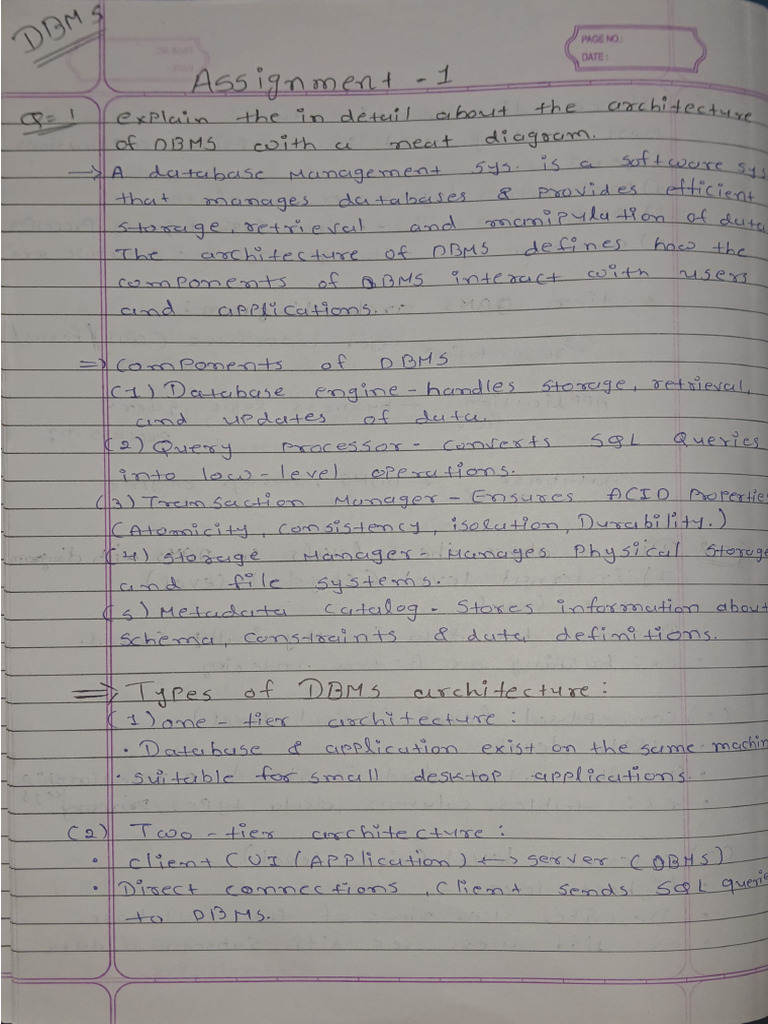 DBMS
PAGE NO.:
DATE:
Assignment - 1
Q=1 explain the in detail about the architecture
of DBMS with a neat diagram.
→ A database Management sys. is a software sys
that manages databases & provides efficient
storage, retrieval and manipulation of data
The architecture of DBMS defines how the
components of DBMS interact with users
and applications...
⇒ components of DBMS
(1) Database engine - handles storage, retrieval,
and updates of data.
(2) Query processor - converts SQL Queries
into low-level operations.
(3) Transaction Manager - Ensures ACID Propertie
(Atomicity, consistency, isolution, Durability.)
(4) storage Manager - Manages Physical Storage
and file systems.
(5) Metadata catalog - Stores information about
schema, constraints & data definitions.
⇒ Types of DBMS architecture:
(1) one-tier architecture:
• Database & application exist on the same machin
• suitable for small desktop applications.
(2) Two-tier architecture:
• client (UI (Application) ↔ server (DBMS)
• Direct connections, client sends SQL querie
to DBMS.